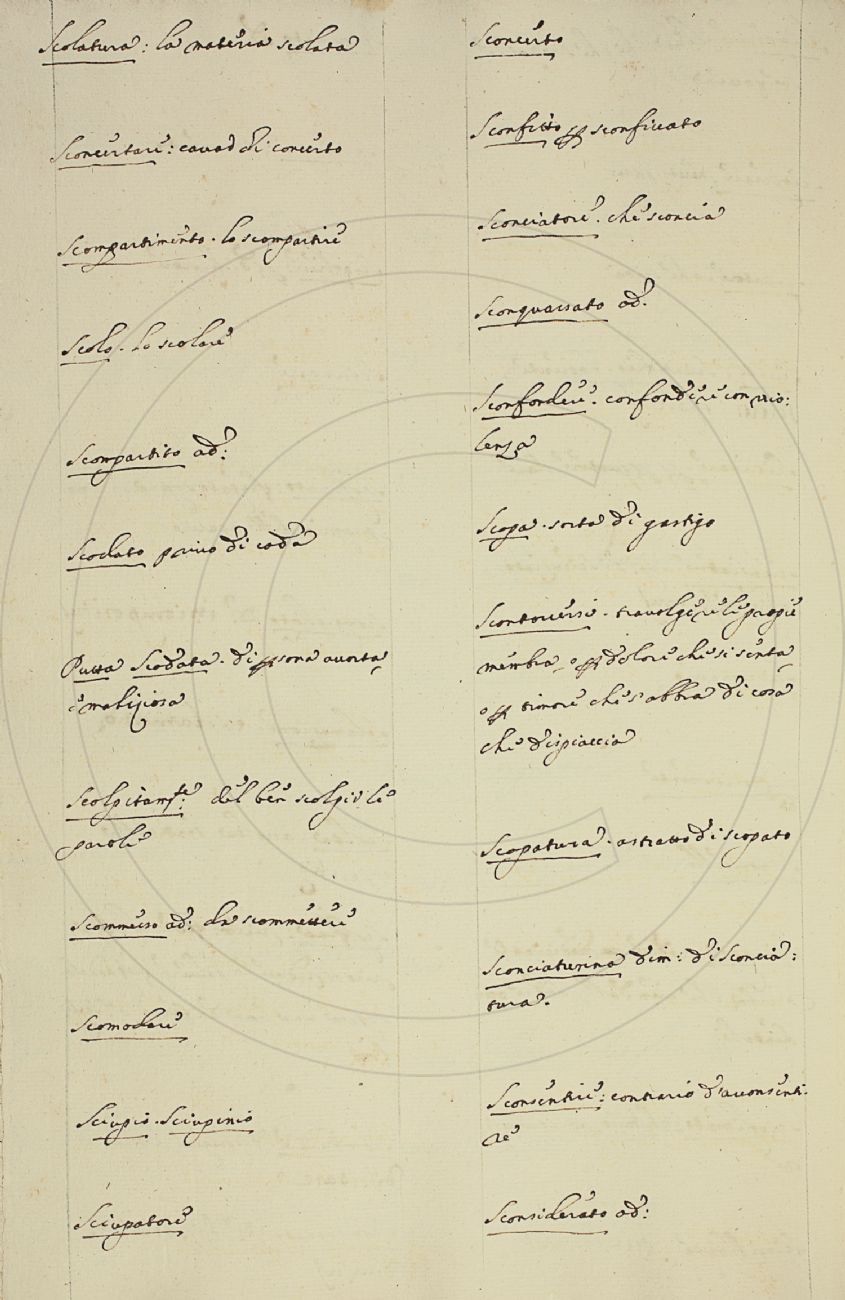 Scolatura: la materia scolata
Sconcertare: cavar di concerto
Scompartimento. lo scompartire
Scolo. lo scolare
Scompartito ad:
Scodato privo di coda
Putta Scodata. di psona accorta,
e maliziosa
Scolpitamte: del ben scolpir le
parole
Scommesso ad: da scommettere
Scomodare
Sciupio. Sciupinio
Sciupatore
Sconcerto
Sconfitto p sconficcato
Sconciatore. che sconcia
Sconquassato ad.
Sconfondere. confondere con vio:
lenza
Scopa. sorta di gastigo
Scontorcersi. travolgere le propie
membra, o p dolore che si senta,
o p timore che s'abbia di cosa
che dispiaccia
Scopatura. astratto di scopato
Sconciaturina dim: di Sconcia:
tura.
Sconsentire: contrario d'acconsenti:
re
Sconsiderato ad: